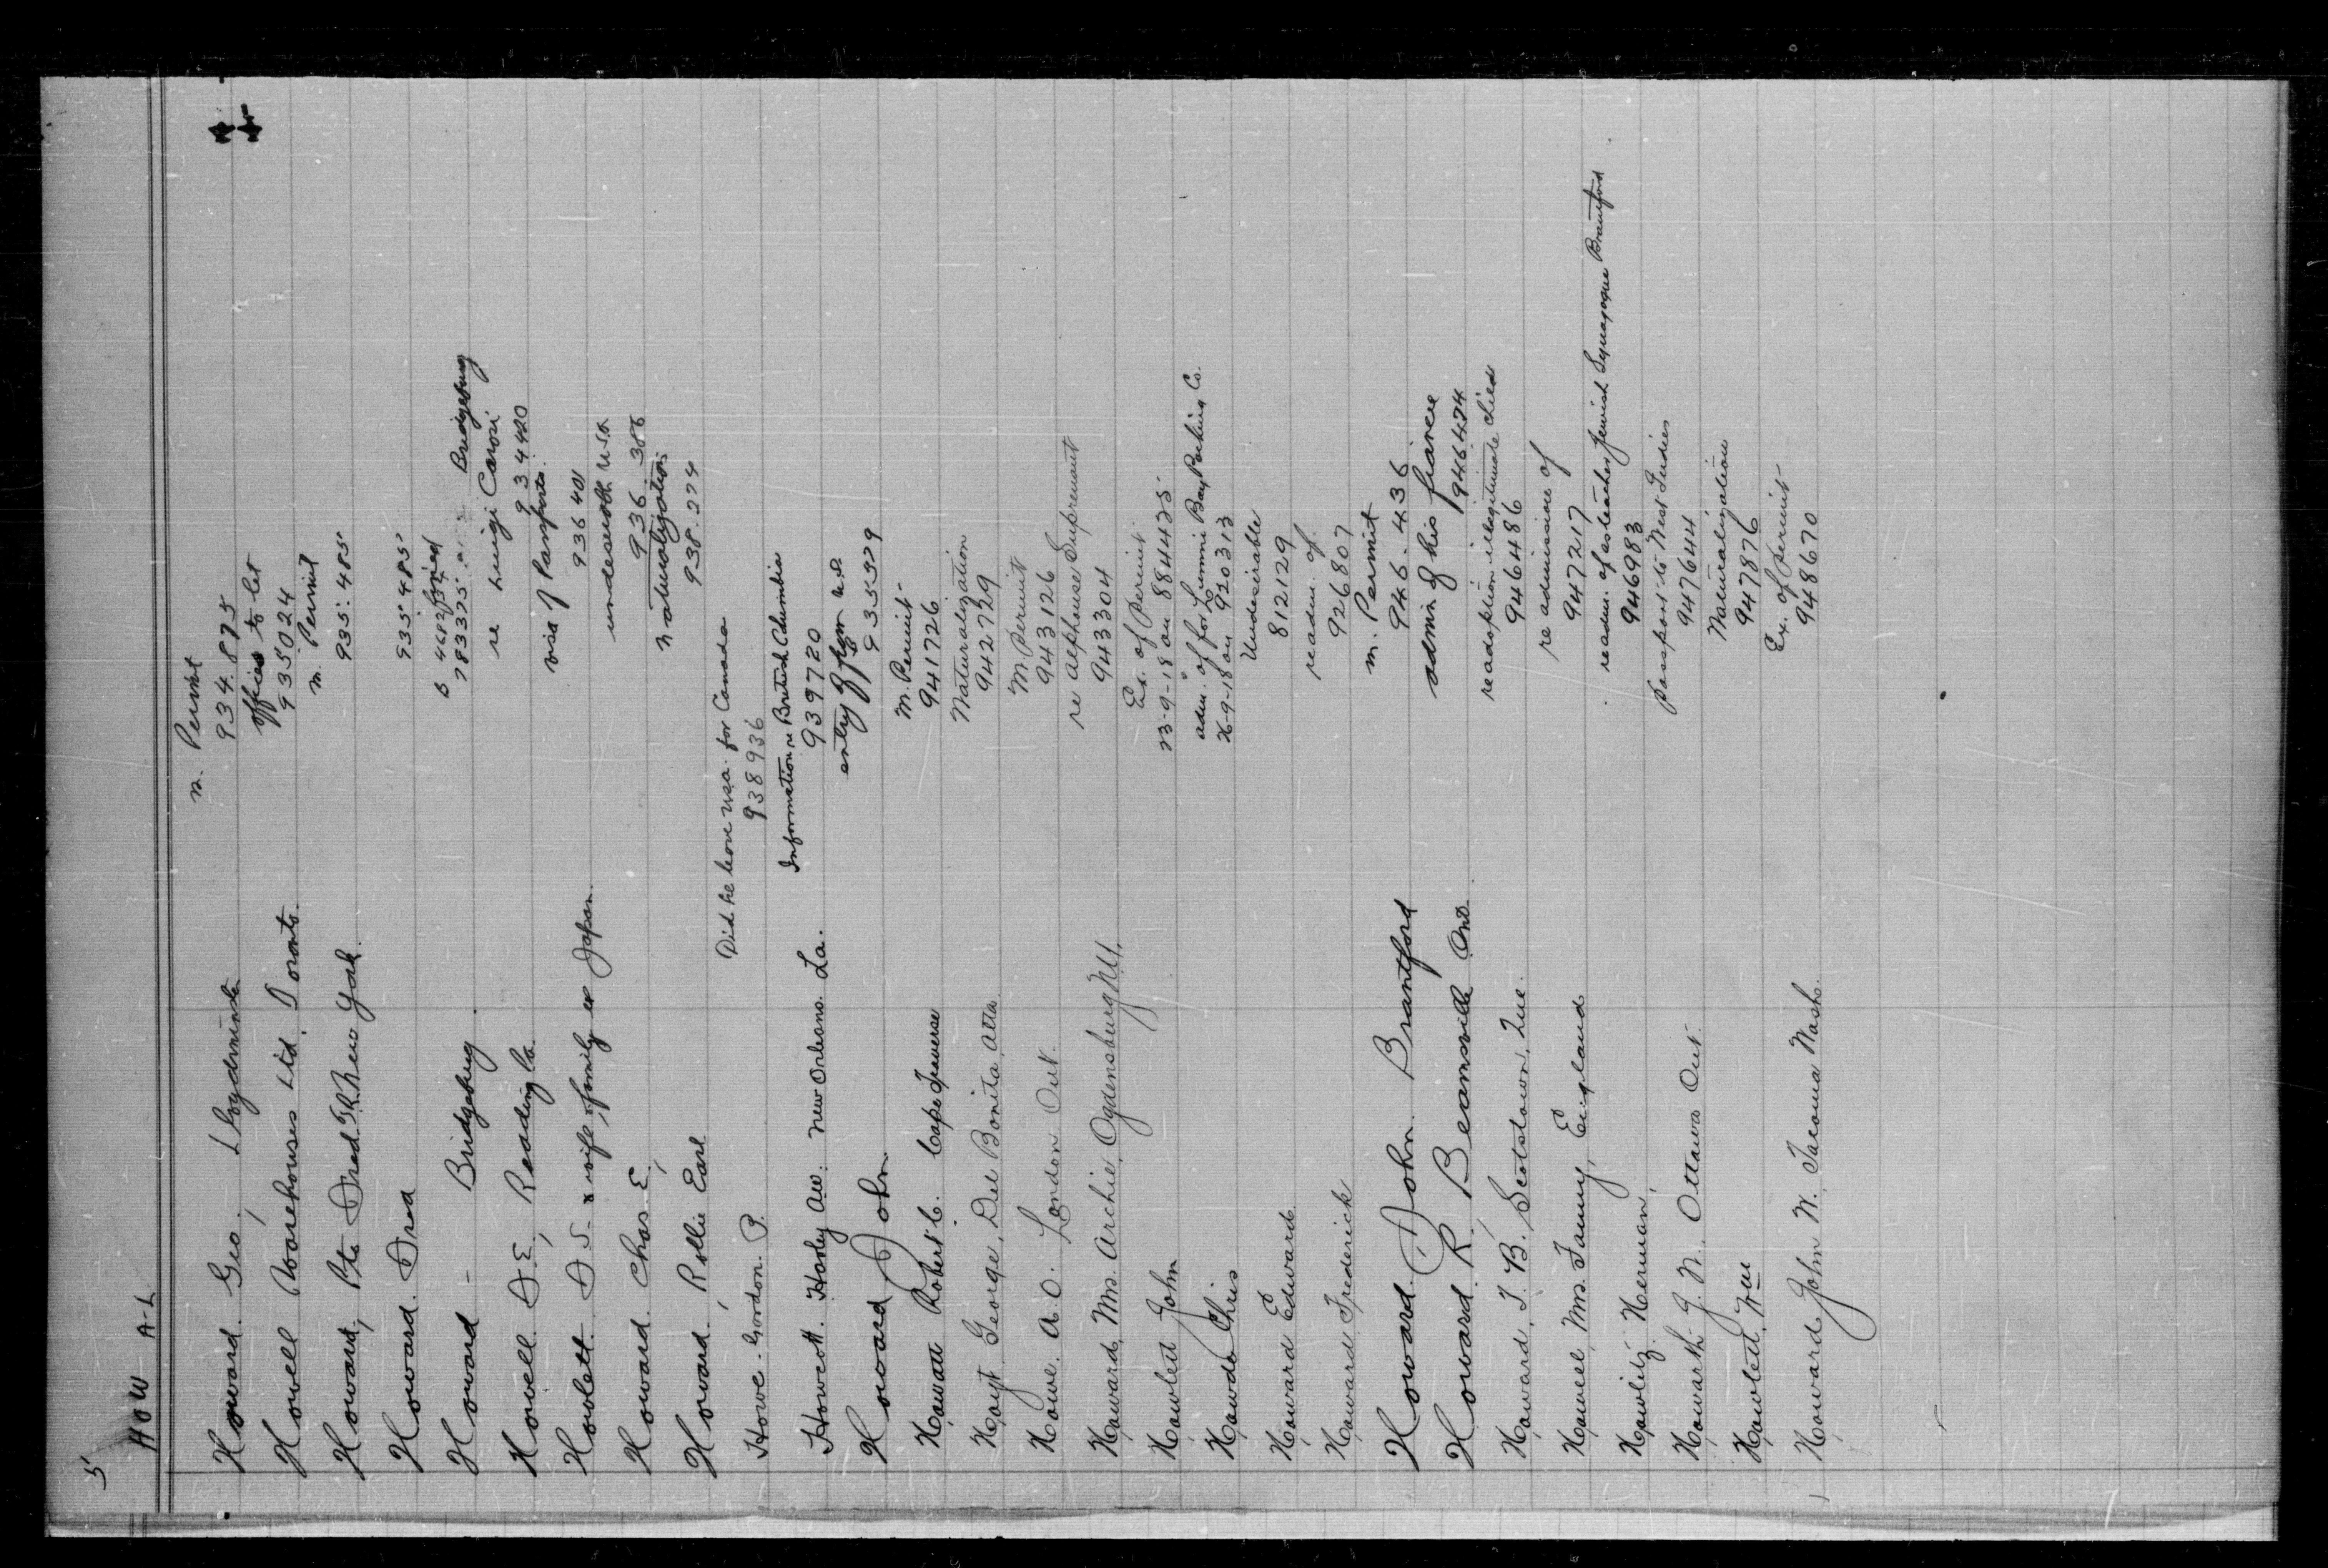 5
HOW A-L
m. Permit
Howard. Geo, 934.875
offices to let
Howell Warehouses Ltd. Toronto. 935024
m. Permit
Howard, Pte Fred. New York. 935.485
Howard. Fred 935485
Howard - Bridgeburg Bridgeburg
re Luigi
Howell D.E, Reading Pa. 934420
visa of Passports.
Howlett. & wife & family ex Japan. 936401
undesirable USA
Howard. Chas. E, 936.386
naturalization
Howard, Rollie Earl 938.274
Did he leave U.S.A. for Canada
Howe. Gordon. P. 938936
Information re British Columbia
Howcott. Harley Aw. New Orleans. La. 939720
entry from U.S.
Howard John 935529
M. Permit
Howatt Robert C. Cape Traverse 941726
Naturalization
Hoyt George, Del Bonita, Alta. 942729
M. Permit
Howe. A.O. London Ont. 943126
re Alphonse Supremant
Howard, Mrs. Archie, Ogdensburg N.Y. 943304
Ex. of Permit
Howlett John 23-9-18 on 884425
adm. of for Lummi Bay Packing Co.
Howda Chris 26-9-18 on 920313
Undesirable
Howard Edward 812129
readm. of
Howard Frederick 926807
m. Permit
Howard. John. Brantford 946.436
admin of his fiancee
Howard. R. Beamsville Ont. 946.424
re adoption illegitimate child
Howard, T. B. Scotstown, Que. 946486
re admission of
Howell, Mrs. Fanny, England 947217
readm. of as teacher Jewish Synagogue Brantford
Howlitz. Herman, 946983
passport to West Indies
Howarth J. N. Ottawa Ont. 947644
Naturalization
Howlett, Wm 947876
Ex. of permit
Howard John W. Tacoma Wash. 948670